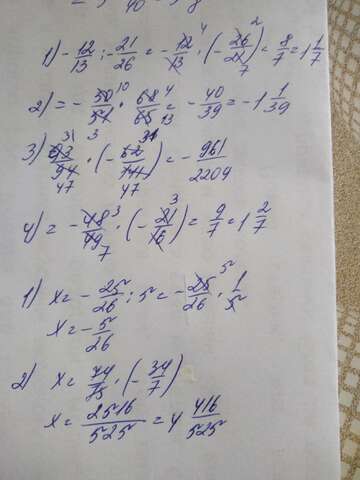 40
1) - 12/13 : - 21/26 = - 12/13 · (- 26/21) = 8/7 = 1 1/7
2) = - 50/51 · 68/65 = - 40/39 = -1 1/39
3) 93/94 · (- 62/141) = - 961/2209
4) = - 48/49 · (- 21/16) = 9/7 = 1 2/7
1) x = - 25/26 : 5 = - 25/26 · 1/5
x = - 5/26
2) x = 74/75 · (- 34/7)
x = 2516/525 = 4 416/525